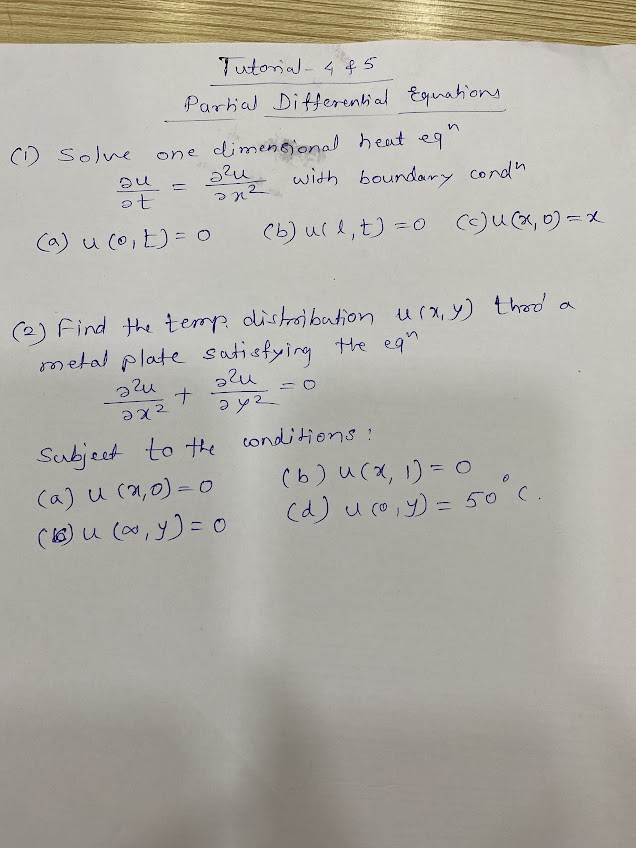 Tutorial - 4 & 5
Partial Differential Equations
(1) Solve one dimensional heat eqⁿ
∂u/∂t = ∂²u/∂x² with boundary condⁿ
(a) u(0,t) = 0 (b) u(l,t) = 0 (c) u(x,0) = x
(2) Find the temp. distribution u(x,y) thro' a
metal plate satisfying the eqⁿ
∂²u/∂x² + ∂²u/∂y² = 0
Subject to the conditions :
(a) u(x,0) = 0 (b) u(x,1) = 0
(c) u(∞,y) = 0 (d) u(0,y) = 50°C.